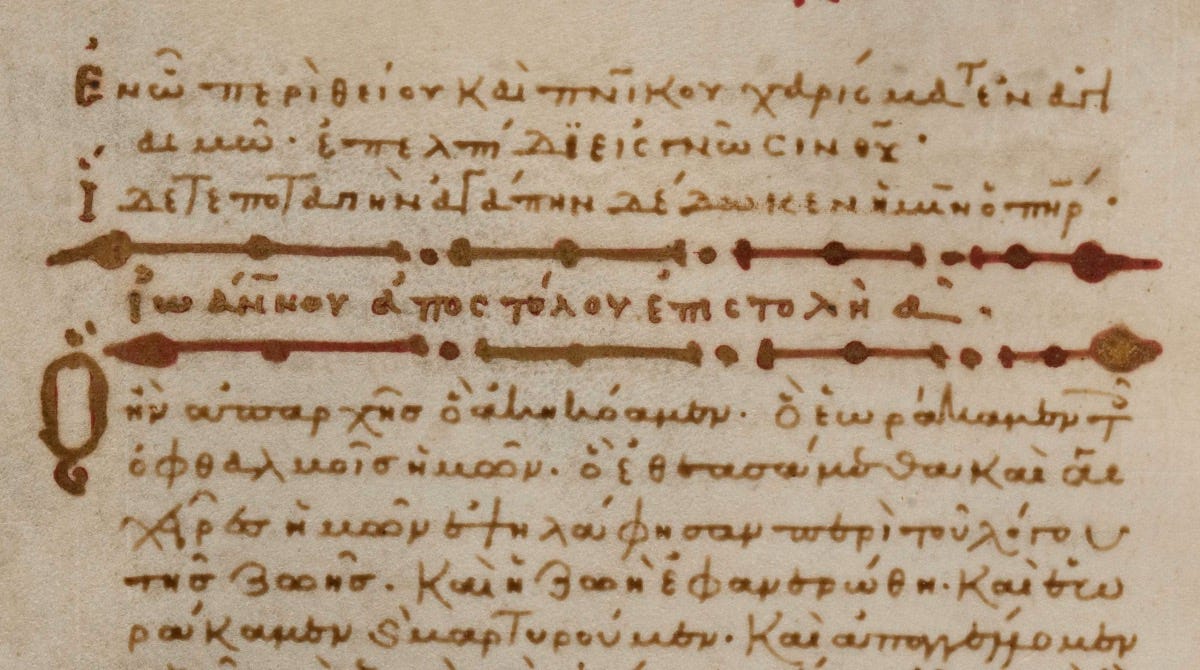 Ἐν ὧ περὶ θείου καὶ πνικοῦ χαρίσματ ἐν ἁγι
ασμῶ· ἐπ ἐλπίδϊ εἰς γνῶσιν θυ·
Ἴδετε ποταπὴν ἀγάπην δέδωκεν ἡμῖν ὁ πηρ·
Ἰωάννου ἀποστόλου ἐπιστολὴ α·
Ὃ ἦν ἀπαρχῆς ὃ ἀκηκόαμεν· ὃ ἑωράκαμεν τοῖς
ὀφθαλμοῖς ἡμῶν· ὃ ἐθεασάμεθα καὶ αἱ
χεῖρες ἡμῶν ἐψηλάφησαν περὶ τοῦ λόγου
τῆς ζωῆς· καὶ ἡ ζωὴ ἐφανερώθη· καὶ ἑω
ράκαμεν ϗ μαρτυροῦμεν· καὶ ἀπαγγέλλομεν